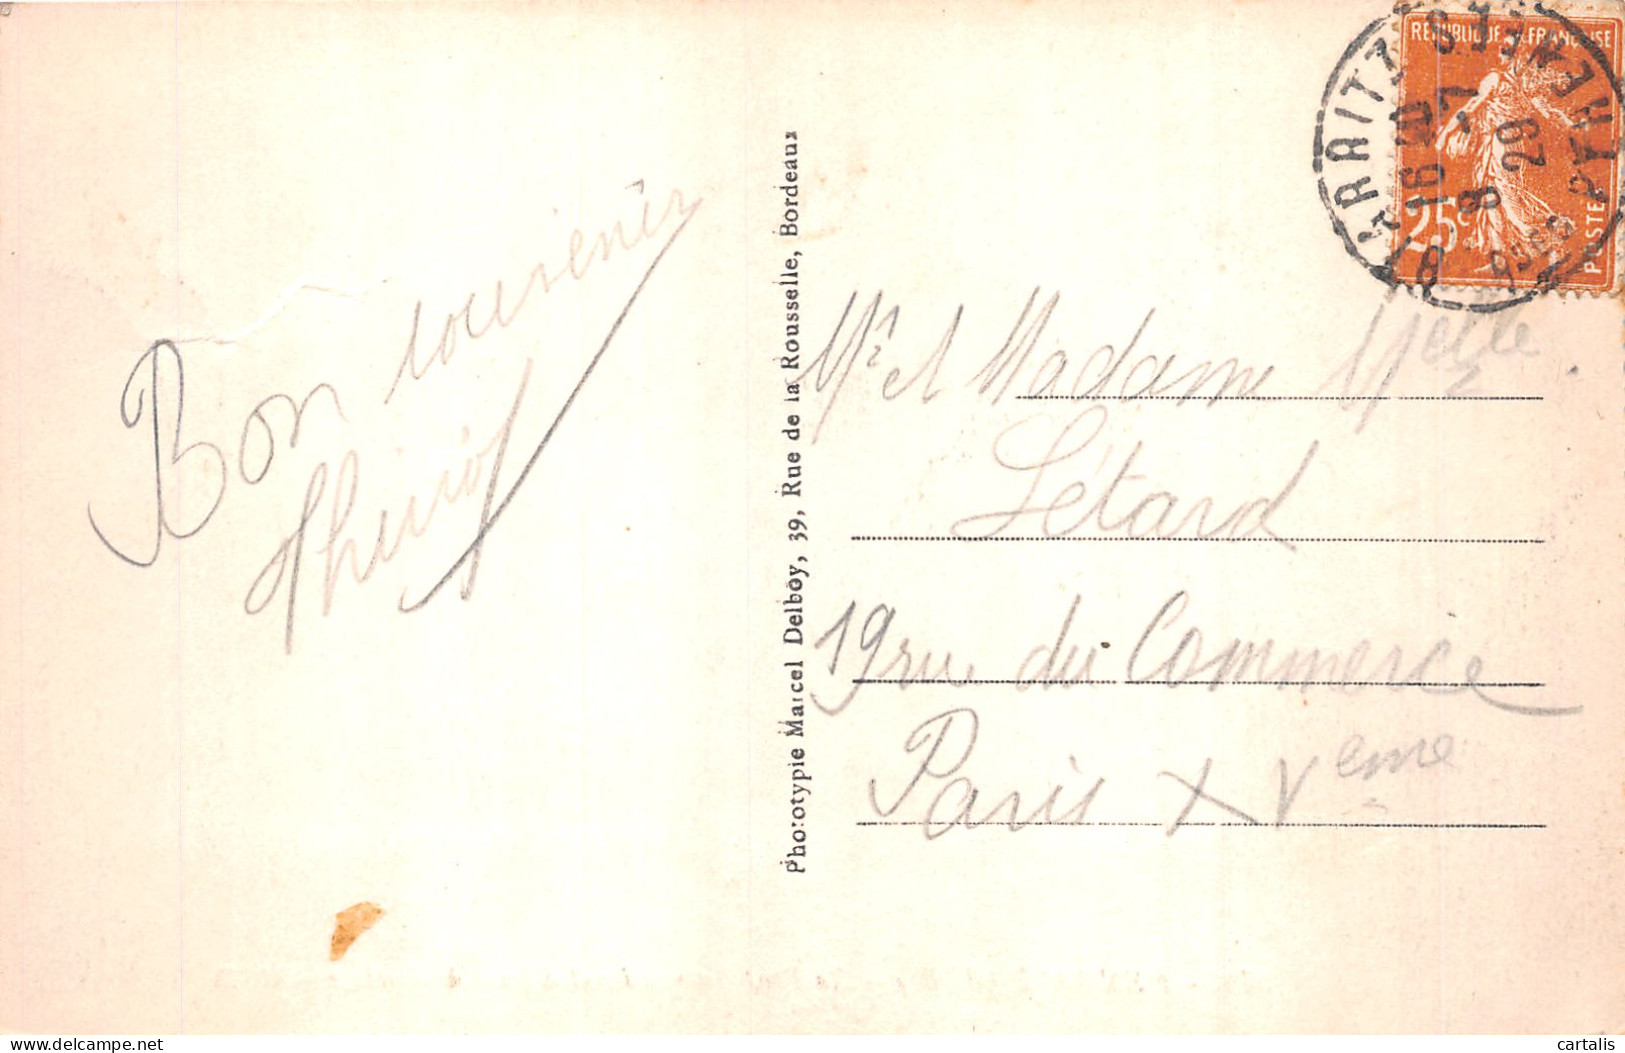 Bon souvenir
Phototypie Marcel Delboy, 39, Rue de la Rousselle, Bordeaux
REPUBLIQUE FRANÇAISE
25c
POSTES
BIARRITZ
16 20
7
8
29
Mr et Madame Melle
Létard
19 rue du Commerce
Paris XVeme
cartalis